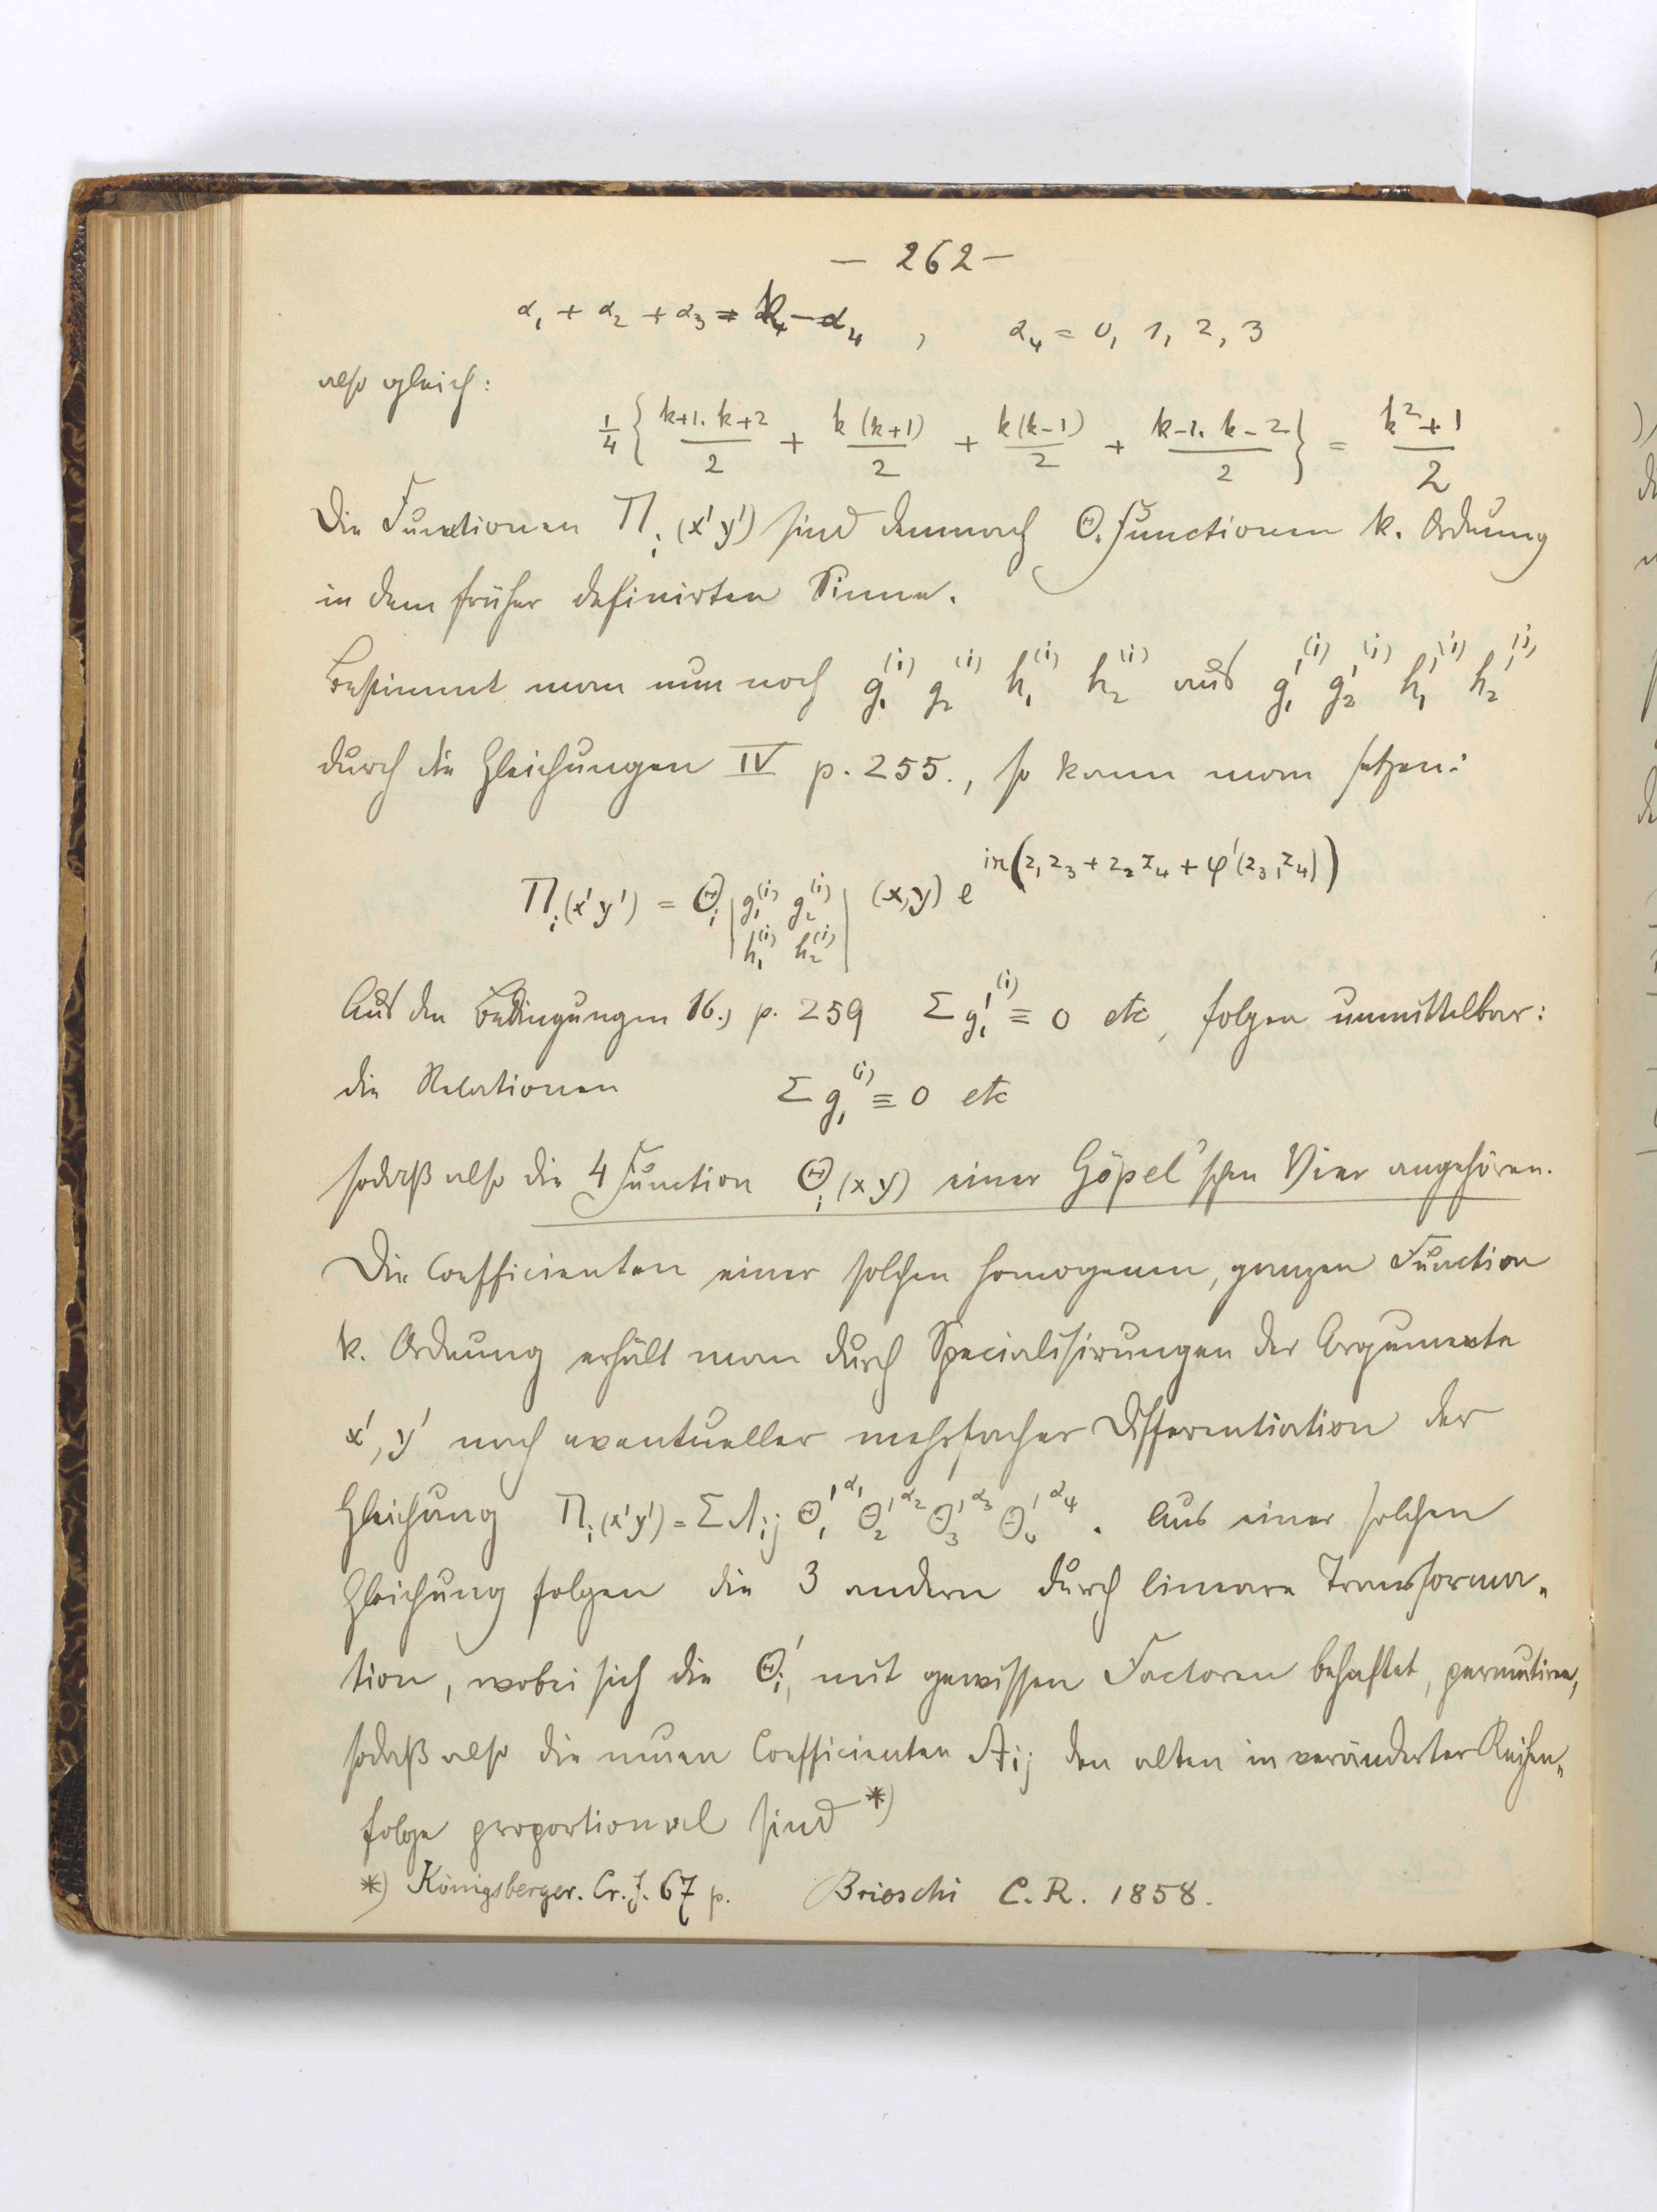 — 262 —
α₁ + α₂ + α₃ = k − α₄ , α₄ = 0, 1, 2, 3
also gleich:
1/4 { k+1. k+2 / 2 + k(k+1) / 2 + k(k-1) / 2 + k-1. k-2 / 2 } = k²+1 / 2
Die Functionen Πᵢ(x'y') sind demnach Θ.functionen k. Ordnung
in dem früher definirten Sinne.
Bestimmt man nun noch g₁⁽ⁱ⁾ g₂⁽ⁱ⁾ h₁⁽ⁱ⁾ h₂⁽ⁱ⁾ aus g₁'⁽ⁱ⁾ g₂'⁽ⁱ⁾ h₁'⁽ⁱ⁾ h₂'⁽ⁱ⁾
durch die Gleichungen IV p. 255., so kann man setzen:
Πᵢ(x'y') = Θᵢ |g₁⁽ⁱ⁾ g₂⁽ⁱ⁾ h₁⁽ⁱ⁾ h₂⁽ⁱ⁾| (x,y) e^{iπ(z₁z₃ + z₂z₄ + φ'(z₃,z₄))}
Aus den Bedingungen 16.) p. 259 Σ g₁'⁽ⁱ⁾ ≡ 0 etc, folgen unmittelbar:
die Relationen Σ g₁⁽ⁱ⁾ ≡ 0 etc
sodaß also die 4 Function Θᵢ(xy) einer Göpel'schen Vier angehören.
Die Coefficienten einer solchen homogenen, ganzen Function
k. Ordnung erhält man durch Specialisirungen der Argumente
x', y' nach eventueller mehrfacher Differentiation der
Gleichung Πᵢ(x'y') = Σ Aᵢⱼ Θ₁'^α₁ Θ₂'^α₂ Θ₃'^α₃ Θ₄'^α₄ . Aus einer solchen
Gleichung folgen die 3 andern durch lineare Transforma„
tion, wobei sich die Θᵢ', mit gewissen Factoren behaftet, permutiren,
sodaß also die neuen Coefficienten Aᵢⱼ den alten in veränderter Reihen„
folge proportional sind *)
*) Königsberger. Cr. J. 67 p. Brioschi C.R. 1858.